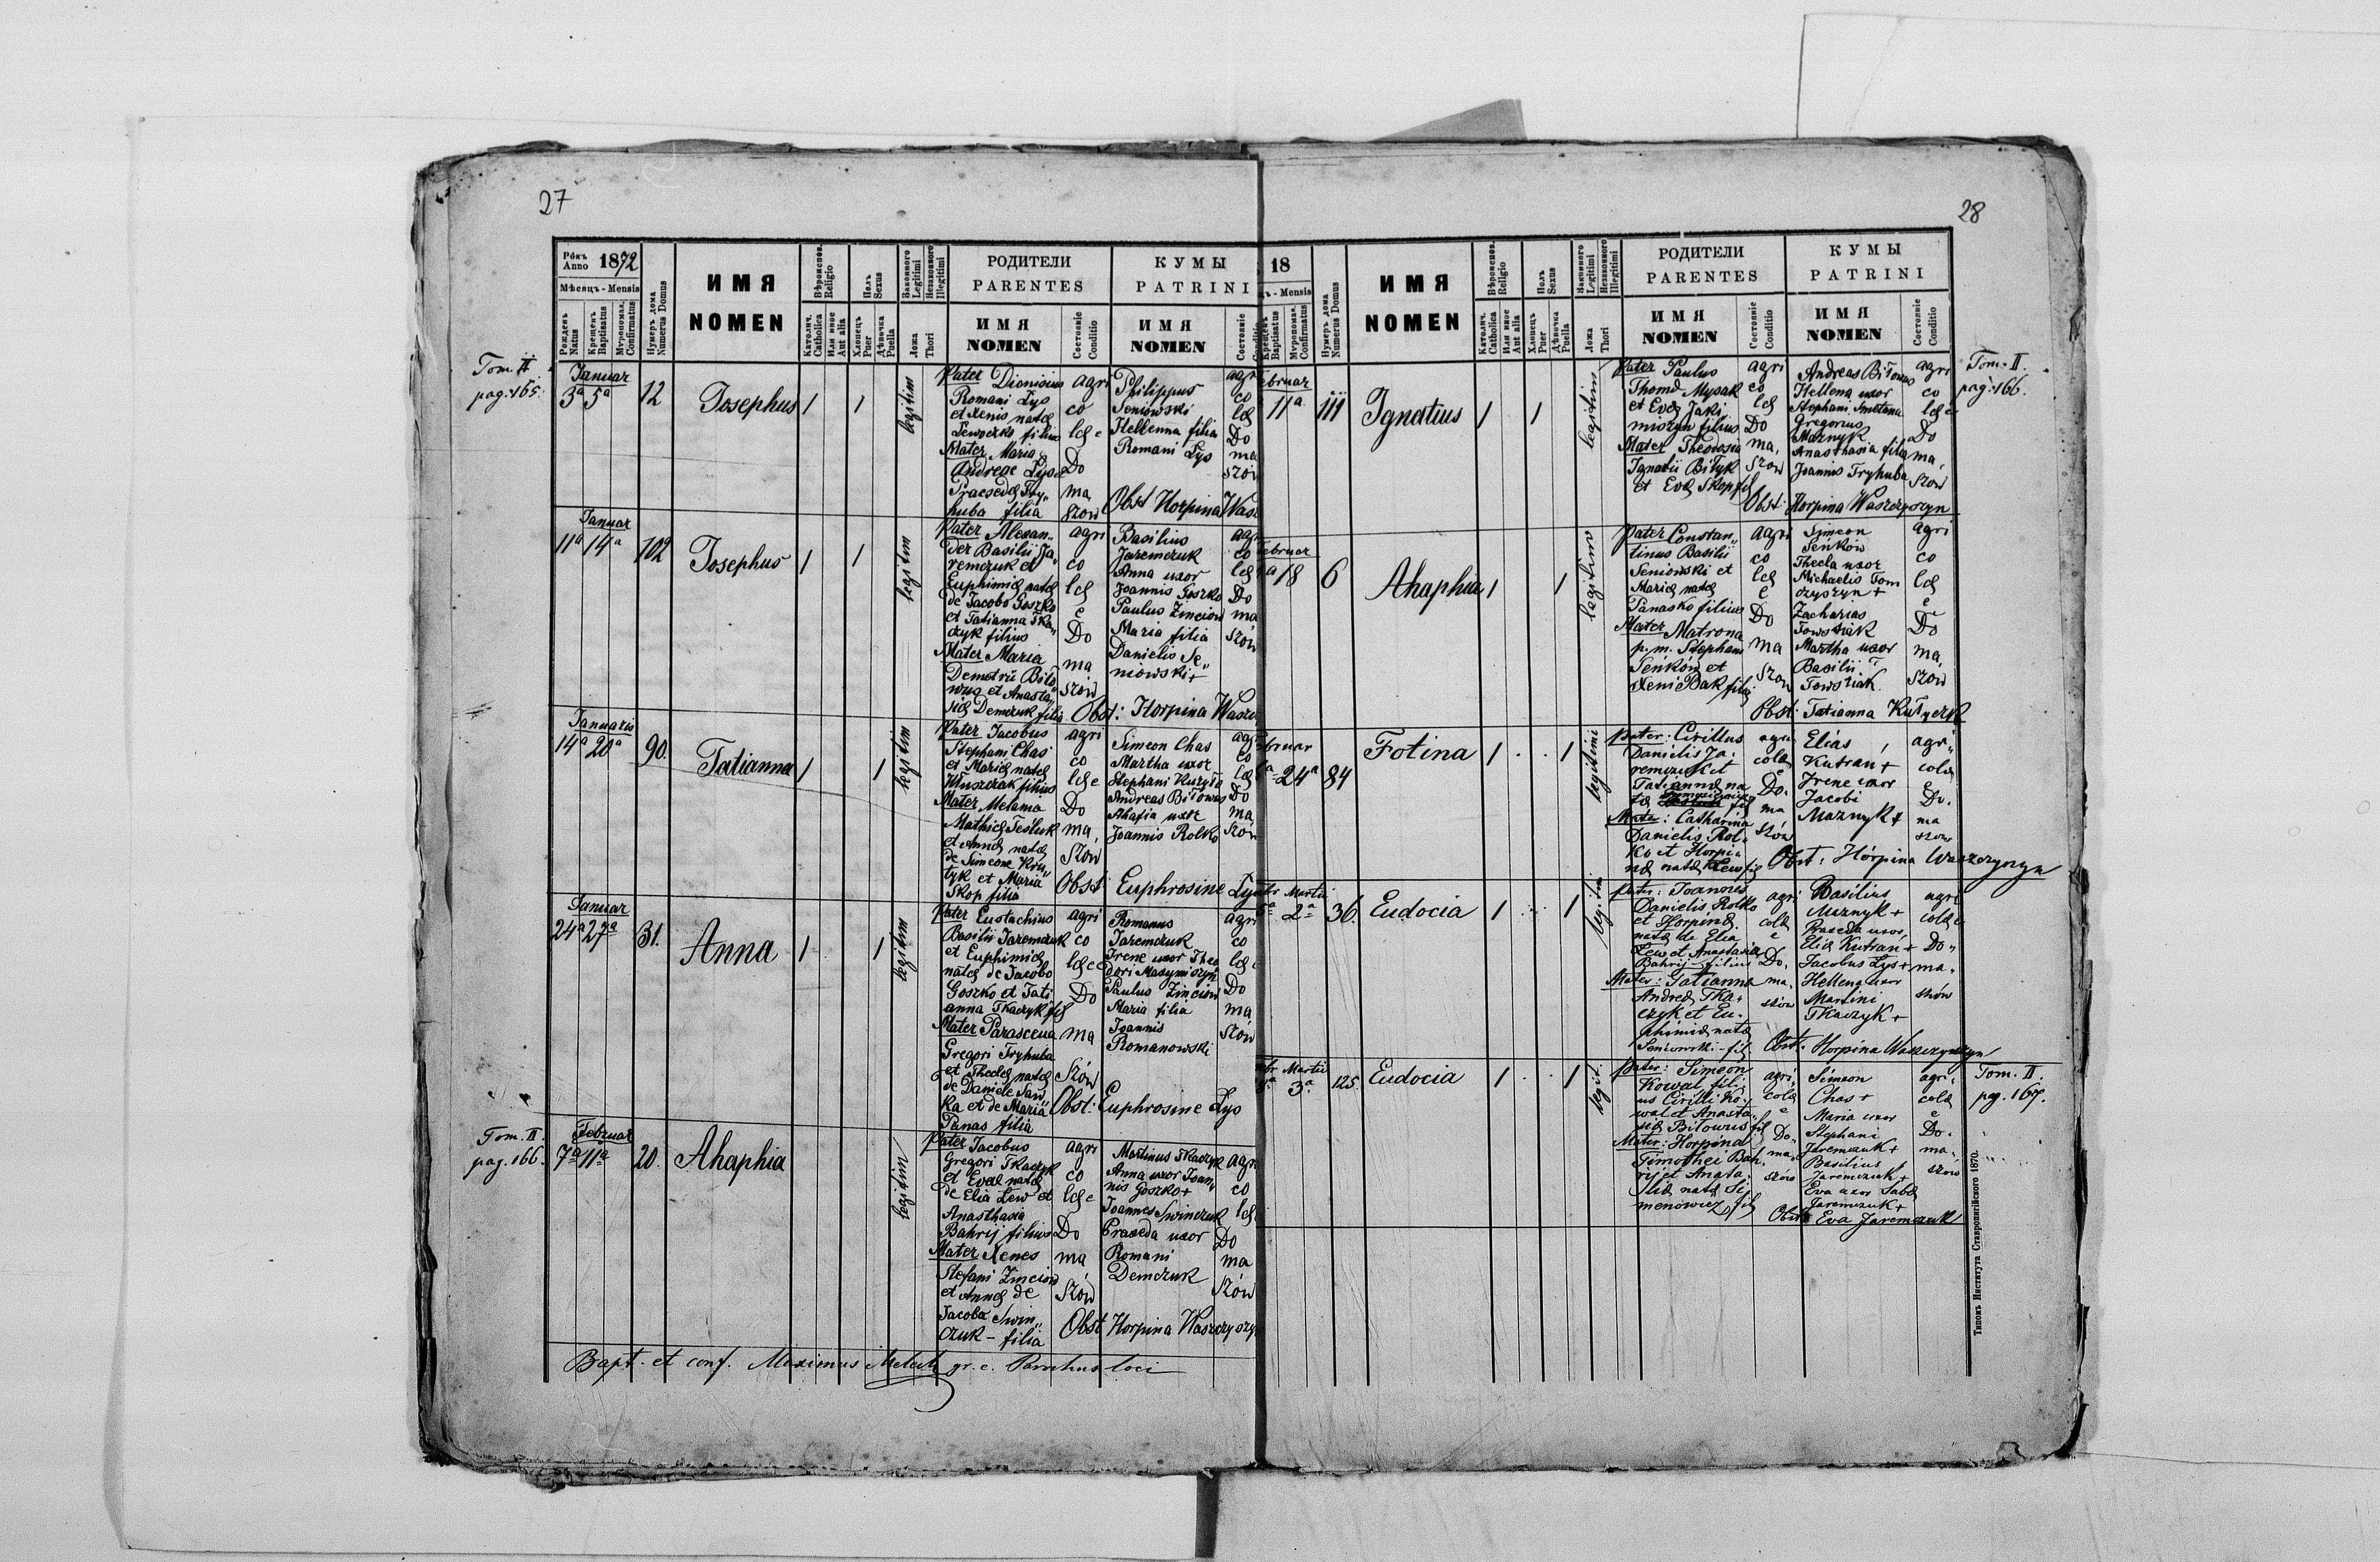 27
Рôкъ Anno 1872
Мѣсяцъ - Mensis
Рожденъ Natus
Крещенъ Baptisatus
Мѵропомаз. Confirmatus
Нумеръ дома Numerus Domus
ИМЯ
NOMEN
Вѣроиспов. Religio
Католич. Catholica
Или иное Aut alia
Полъ Sexus
Хлопецъ Puer
Дѣвочка Puella
Законного Legitimi
Незаконного Illegitimi
Ложа Thori
РОДИТЕЛИ
PARENTES
ИМЯ
NOMEN
Состояніе Conditio
КУМЫ
PATRINI
ИМЯ
NOMEN
Состояніе Conditio
Tom. II.
pag. 165.
Januar
3ª 5ª
12
Josephus
1
1
legitim
Pater Dionisius
Romani Lys
et Xenis natæ
Lewoczko filius
Mater Maria
Andreae Lys et
Praxedæ Try„
huba filia
agri
co
læ e
Do
ma,
szow
Philippus
Seniowski
Hellenna filia
Romani Lys
agri
co
læ
Do
ma
szow
Obst Horpina Wasz
Januar
11ª 14ª
102
Josephus
1
1
legitim
Pater Alexan„
der Basilii Ja„
remczuk et
Euphimiæ natæ
de Jacobo Goszko
et Tatianna Tka„
czyk filius
Mater Maria
Demetrii Biło
wus et Anasta„
siæ Demczuk filia
agri
co
læ
e
Do
ma
szów
Basilius
Jaremczuk
Anna uxor
Joannis Goszko
Paulus Zinciow
Maria filia
Danielis Se„
niowski +
agri
co
læ
Do
ma
szów
Obst: Horpina Waszcz
Januaris
14ª 20ª
90.
Tatianna
1
1
legitim
Pater Jacobus
Stephani Chas
et Mariæ natæ
Hłuszczak filius
Mater Melania
Mathiæ Teśluk
et Annæ natæ
de Simeone Kru„
tyk et Maria
Skop filia
agri
co
læ e
Do
ma,
szow
Simeon Chas
Martha uxor
Stephani Kuryło
Andreas Biłowus
Ahafia uxor
Joannis Rolko
agri
co
læ
Do
ma
szów
Obst Euphrosine Lys
Januar
24ª 27ª
31.
Anna
1
1
legitim
Pater Eustachius
Basilii Jaremczuk
et Euphimiæ
natæ de Jacobo
Goszko et Tati
anna Tkaczyk fil
Mater Parascewa
Gregori Tryhuba
et Theclæ natæ
de Daniele Saw„
ka et de Maria
Panas filia
agri
co
læ e
Do
ma
szów
Romanus
Jaremczuk
Irene uxor Theo
dori Maxymiszyn
Paulus Zinciow
Maria filia
Joannis
Romanowski
agri
co
læ
Do
ma
szów
Obst: Euphrosine Lys
Tom. II.
pag. 166.
Februar
7ª 11ª
20.
Ahaphia
legitim
Pater Jacobus
Gregori Tkaczyk
et Evae natæ
de Elia Lew et
Anasthasia
Bahrij filius
Mater Xenes
Stefani Zinciow
et Annæ de
Jacobo Swin„
czuk – filia
agri
co
læ e
Do
ma
szów
Martinus Tkaczyk
Anna uxor Joan„
nis Goszko +
Joannes Swinczuk
Praxeda uxor
Romani
Demczuk
agri
co
læ
Do
ma
szów
Obst Horpina Waszczyszy
Bapt. et conf. Maximus gr. c. Parochus loci
28
18
ць - Mensis
Крещенъ Baptisatus
Мѵропомаз. Confirmatus
Нумеръ дома Numerus Domus
ИМЯ
NOMEN
Вѣроиспов. Religio
Католич. Catholica
Или иное Aut alia
Полъ Sexus
Хлопецъ Puer
Дѣвочка Puella
Законного Legitimi
Незаконного Illegitimi
Ложа Thori
РОДИТЕЛИ
PARENTES
ИМЯ
NOMEN
Состояніе Conditio
КУМЫ
PATRINI
ИМЯ
NOMEN
Состояніе Conditio
Tom. II.
pag. 166.
ebruar
11ª
111
Ignatius
1
1
legitim
Pater Paulus
Thomæ Mysak
et Evæ Jaki
miszyn filius
Mater Theodosia
Ignatii Biłyk
et Evæ Skop fil
agri
co
læ
Do
ma,
szow
Andreas Biłowus
Hellena uxor
Stephani Smetana
Gregorius
Maznyk
Anasthasia filia
Joannis Tryhuba
agri
co
læ e
Do
ma,
szow
Obst: Horpina Waszczyszyn
ebruar
18
6
Ahaphia
1
1
legitim
Pater Constan„
tinus Basilii
Seniowski et
Mariæ natæ
Panasko filius
Mater Matrona
p. m. Stephani
Seńków et
Xeni Bak filia
agri
co
læ
e
Do
ma
szow
Simeon
Seńkow
Thecla uxor
Michaelis Tom
czyszyn +
Zacharias
Towstiak
Martha uxor
Basilii
Towstiak
agri
co
læ
e
Do
ma,
szow
Obst: Tatianna Kułyczk
ebruar
24ª
84
Fotina
1
1
legitimi
Pater: Cirillus
Danielis Ja„
remczuk et
Tatiannæ na
tæ fil
Mater: Catharina
Danielis Rol„
ko et Horpi„
næ natæ Lew fil
agri
colæ
e
Do.
ma
szów
Elias
Kutran +
Irene uxor
Jacobi
Maznyk +
agri„
colæ
e
Do.
ma
szow
Obst: Horpina Waszczyszyn
br Martii
2ª
36.
Eudocia
1
1
legitim
Pater: Joannes
Danielis Rolko
et Horpinæ
natæ de Elia
Lew et Anastasia
Bahrij filius
Mater: Tatianna
Andreæ Tka„
czyk et Eu„
phimiæ natæ
Seniowski – fil
agri
colæ
e
Do.
ma.
szów
Basilius
Maznyk +
Praxeda uxor
Eliæ Kutran +
Jacobus Lys +
Hellena uxor
Martini
Tkaczyk +
agri
colæ e
Do„
ma„
szów
Obst: Horpina Waszczyszyn
br Martii
3ª
125.
Eudocia
1
1
legit.
Pater: Simeon
Kowal fili„
us Cirilli Ko„
wal et Anasta„
siæ Biłowus fil
Mater: Horpina
Timothei Bah„
rij et Anata„
siæ natæ Si„
menowicz fil
agri„
colæ
e
Do„
ma„
szów
Simeon
Chas +
Maria uxor
Stephani
Jaremczuk +
Basilius
Jaremczuk +
Eva uxor Sabæ
Jaremczuk +
agri„
colæ
e
Do.
ma„
szów
Obst: Eva Jaremczuk
Tom. II.
pag. 167.
Типомъ Института Ставропигійского 1870.